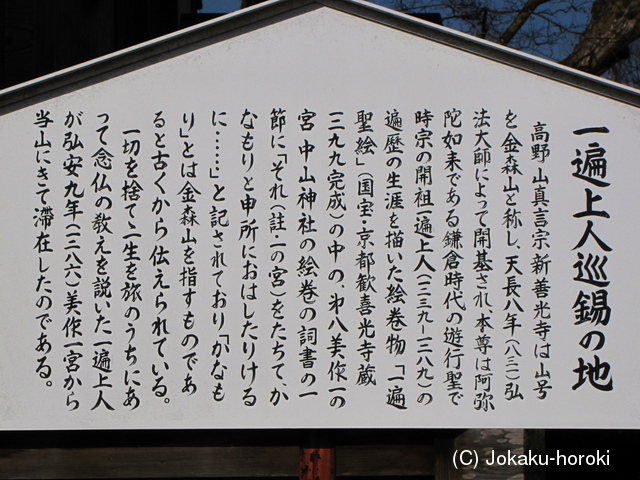 一遍上人巡錫の地
高野山真言宗新善光寺は山号
を金森山と称し、天長八年(八三一)弘
法大師によって開基され、本尊は阿弥
陀如来である鎌倉時代の遊行聖で
時宗の開祖一遍上人(一二三九ー一二八九)の
遍歴の生涯を描いた絵巻物「一遍
聖絵」(国宝・京都歓喜光寺蔵
一二九九完成)の中の、第八美作一の
宮 中山神社の絵巻の詞書の一
節に「それ(註・一の宮)をたちて、か
なもりと申所におはしたりける
に……」と記されており「かなも
り」とは金森山を指すものであ
ると古くから伝えられている。
一切を捨て一生を旅のうちにあ
って念仏の教えを説いた一遍上人
が弘安九年(一二八六)美作一宮から
当山にきて滞在したのである。
(C) Jokaku-horoki